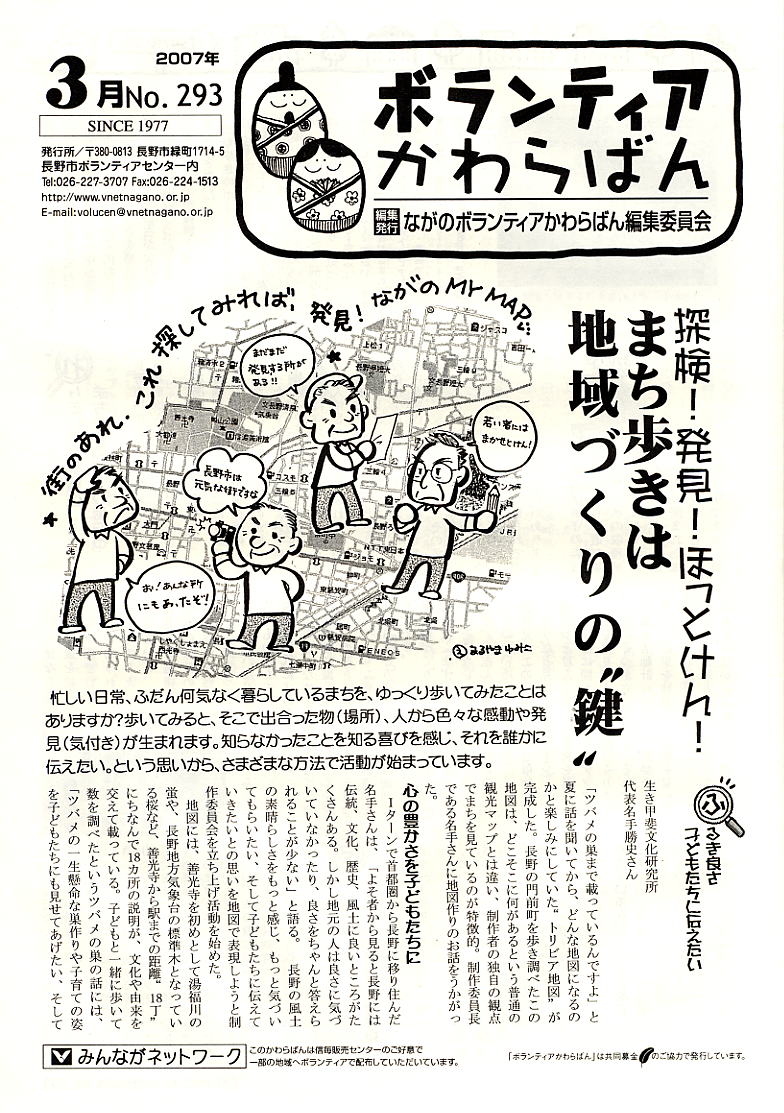 2007年
3月No. 293
SINCE 1977
発行所／〒380-0813 長野市緑町1714-5
長野市ボランティアセンター内
Tel:026-227-3707 Fax:026-224-1513
http://www.vnetnagano.or.jp
E-mail:volucen@vnetnagano.or.jp
ボランティア
かわらばん
編集発行 ながのボランティアかわらばん編集委員会
探検！発見！ほっとけん！
まち歩きは
地域づくりの〝鍵〟
★街のあれ・これ 探してみれば、発見！ながのMY MAP…
まだまだ
発見する所が
ある!!
若い者には
まかせとけん!
長野市は
元気な街ですな
お！あんな所
にもあったぞ！
ジャスコ
コスモ
NTT東日本
ジョモ
ENEOS
忙しい日常、ふだん何気なく暮らしているまちを、ゆっくり歩いてみたことは
ありますか？歩いてみると、そこで出合った物（場所）、人から色々な感動や発
見（気付き）が生まれます。知らなかったことを知る喜びを感じ、それを誰かに
伝えたい。という思いから、さまざまな方法で活動が始まっています。
ふるさ良さ
子どもたちに伝えたい
生き甲斐文化研究所
代表名手勝史さん
「ツバメの巣まで載っているんですよ」と
夏に話を聞いてから、どんな地図になるの
かと楽しみにしていた“トリビア地図”が
完成した。長野の門前町を歩き調べたこの
地図は、どこそこに何があるという普通の
観光マップとは違い、制作者の独自の観点
でまちを見ているのが特徴的。制作委員長
である名手さんに地図作りのお話をうかがっ
た。
心の豊かさを子どもたちに
Ｉターンで首都圏から長野に移り住んだ
名手さんは、「よそ者から見ると長野には
伝統、文化、歴史、風土に良いところがた
くさんある。しかし地元の人は良さに気づ
いていなかったり、良さをちゃんと答えら
れることが少ない」と語る。　長野の風土
の素晴らしさをもっと感じ、もっと気づい
てもらいたい、そして子どもたちに伝えて
いきたいとの思いを地図で表現しようと制
作委員会を立ち上げ活動を始めた。
地図には、善光寺を初めとして湯福川の
蛍や、長野地方気象台の標準木となってい
る桜など、善光寺から駅までの距離“18丁”
にちなんで18カ所の説明が、文化や由来を
交えて載っている。子どもと一緒に歩いて
数を調べたというツバメの巣の話には、
「ツバメの一生懸命な巣作りや子育ての姿
を子どもたちにも見せてあげたい、そして
みんながネットワーク
このかわらばんは信毎販売センターのご好意で
一部の地域へボランティアで配布していただいています。
「ボランティアかわらばん」は共同募金のご協力で発行しています。